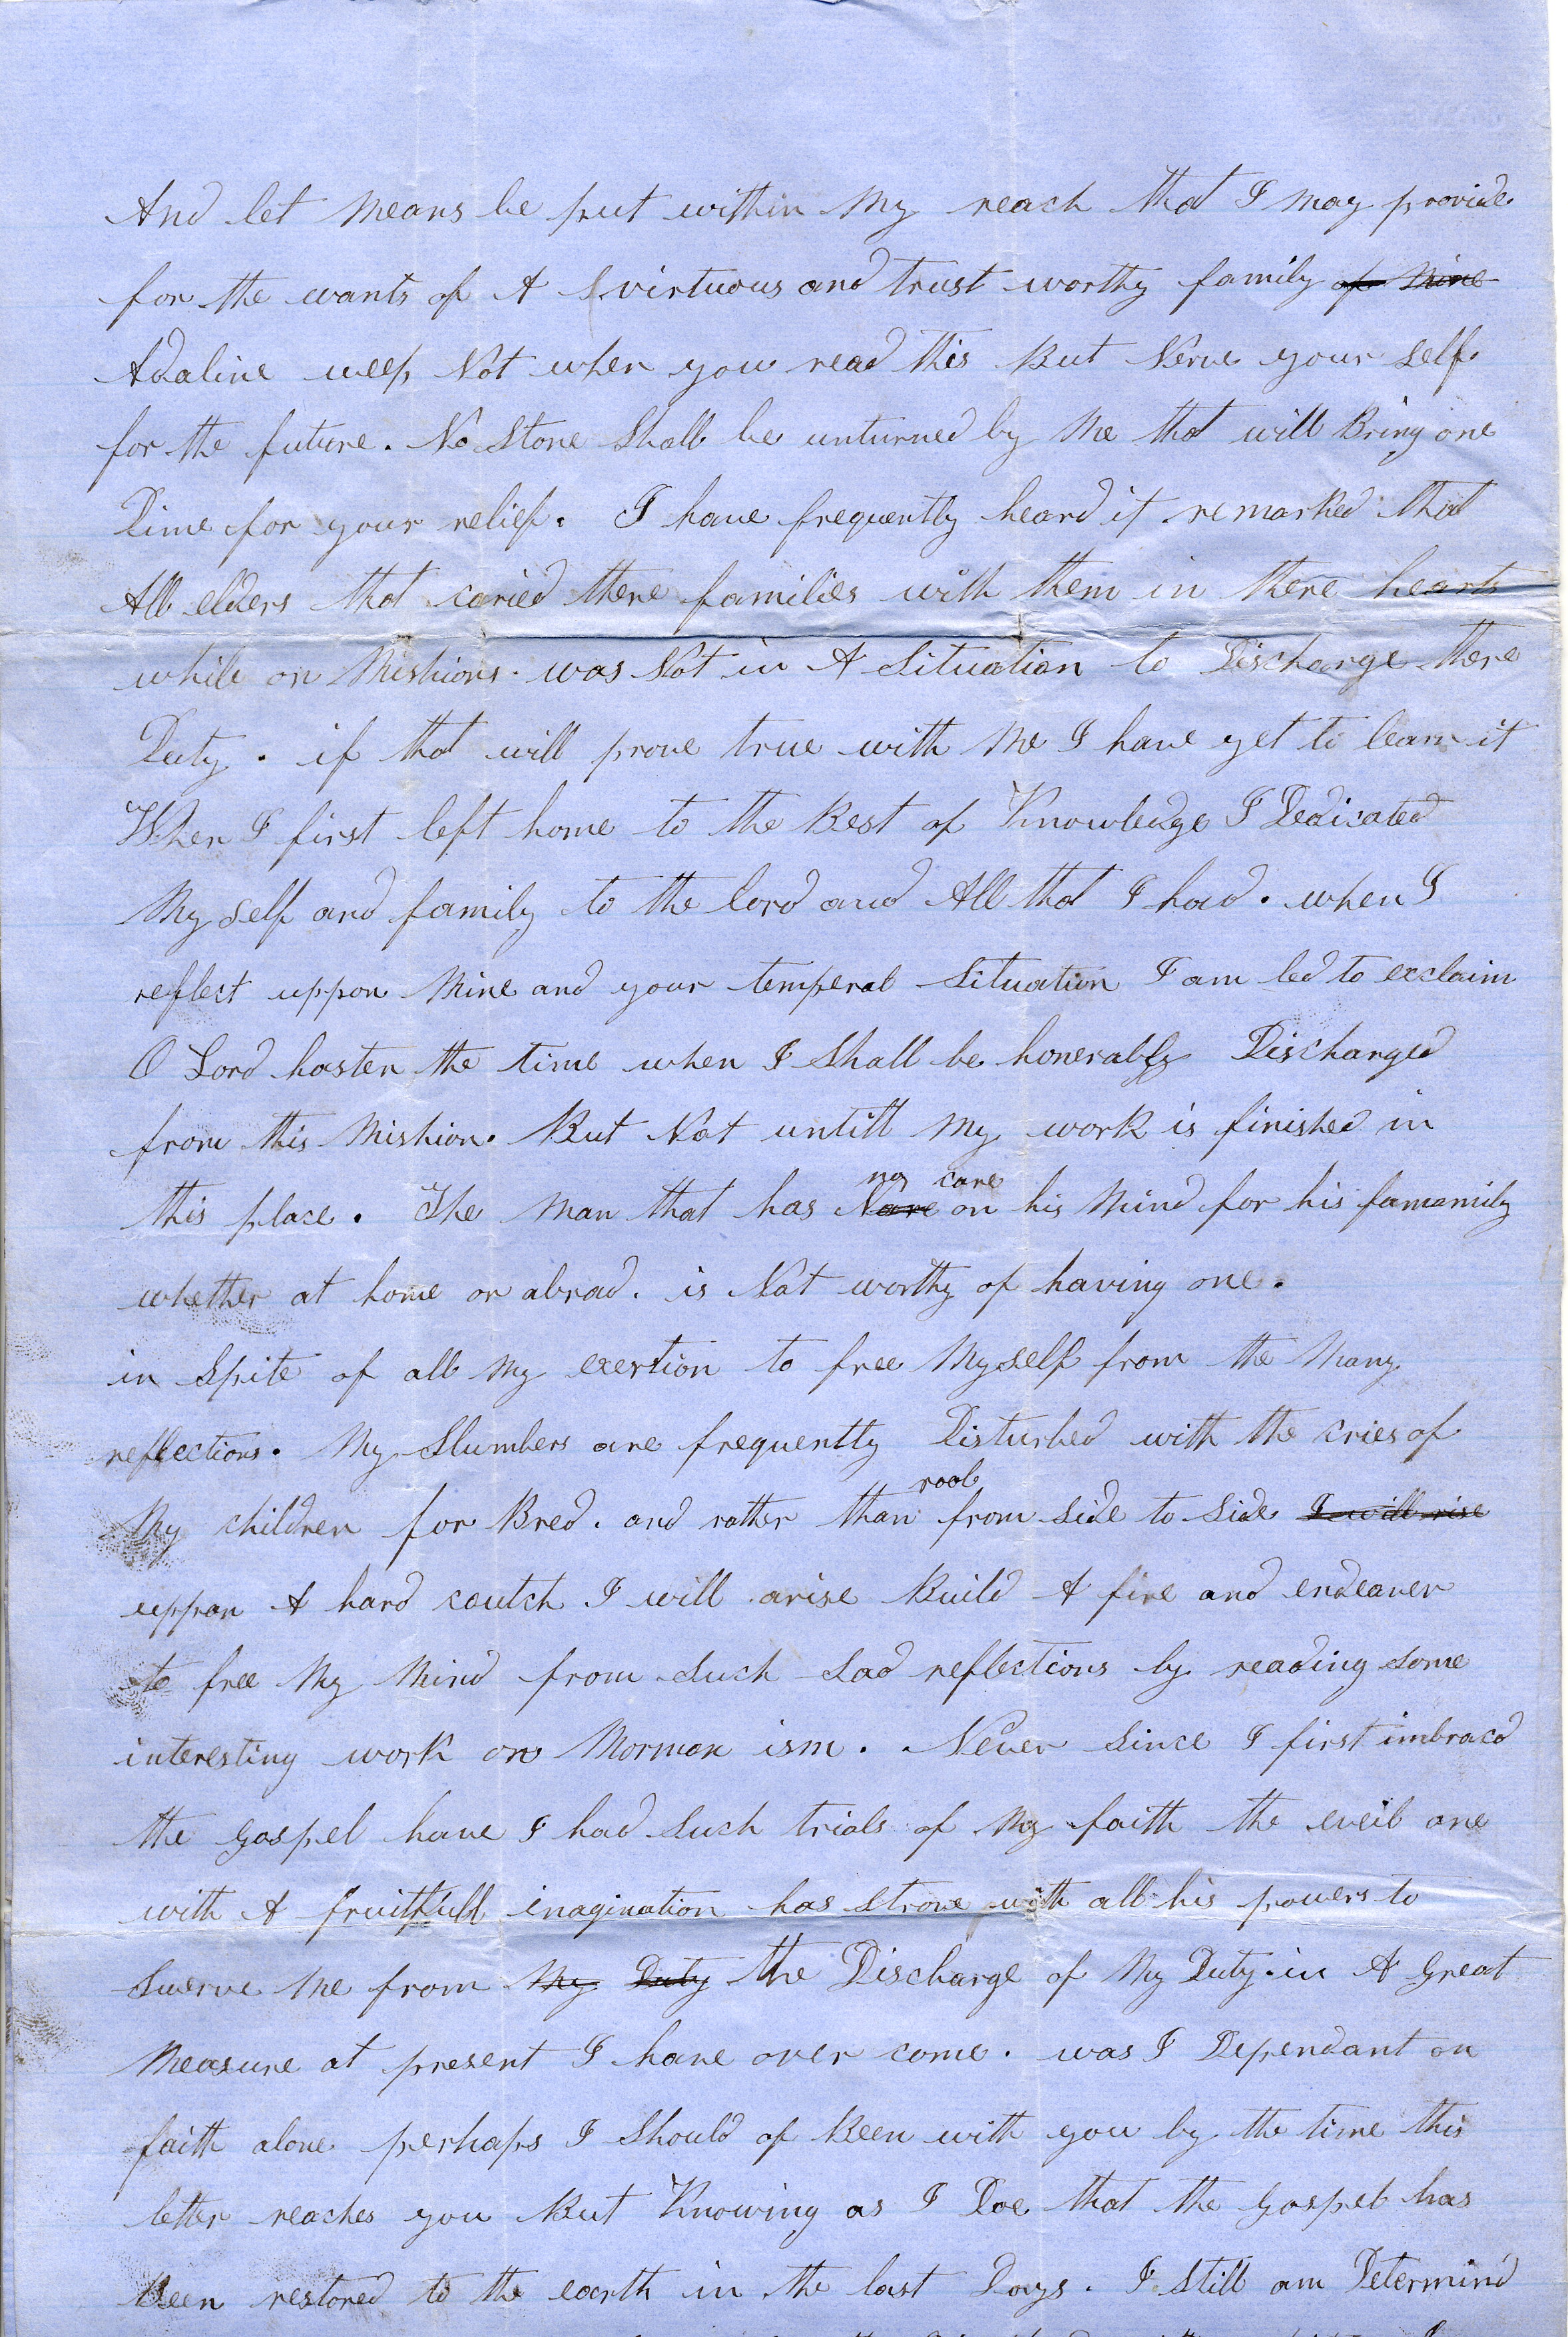 And let Means be put within My reach that I may provide
for the wants of A virtuous and trust worthy family of Mine
Adaline weep Not when you read this But Nerve your self
for the future. No Stone Shall be unturned by Me that will Bring one
Dime for your relief. I have frequently heard it remarked that
All elders that caried there families with them in there hearts
while on Mishions. was Not in A Situation to Discharge there
Duty. if that will prove true with Me I have yet to learn it
When I first left home to the Best of Knowledge I Dedicated
My self and family to the lord and All that I had. when I
reflect uppon Mine and your temperal Situation I am led to exclaim
O Lord hasten the time when I Shall be honerably Discharged
from this Mishion. But Not untill My work is finished in
this place. The Man that has no care on his Mind for his famamily
whether at home or abrad. is Not worthy of having one.
in Spite of all My exertion to free Myself from the Many
reflections. My Slumbers are frequently Disturbed with the cries of
My children for Bred. and rather than rool from side to side I will rise
uppon A hard coutch I will arise Build A fire and endeaver
to free My Mind from such Sad reflections by reading some
interesting work on Mormon ism. Never Since I first imbracd
the gospel have I had Such trials of My faith the eveil one
with A fruitfull inagination has Strove with all his powers to
Swerve Me from My Duty the Discharge of My Duty. in A Great
Measure at present I have over come. was I Dependant on
faith alone perhaps I Should of Been with you by the time this
letter reaches you But Knowing as I Doe that the gospel has
Been restored to the earth in the last Days. I Still am Determind